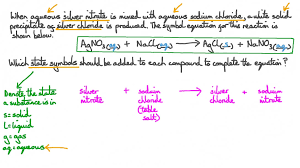 When aqueous silver nitrate is mixed with aqueous sodium chloride, a white solid
precipitate of silver chloride is produced. The symbol equation for this reaction is
shown below.
AgNO₃(aq) + NaCl(aq) → AgCl(s) + NaNO₃(aq)
Which state symbols should be added to each compound to complete the equation?
Denote the state a substance is in
silver nitrate + sodium chloride (table salt) → silver chloride + sodium nitrate
s = solid
L = liquid
g = gas
aq = aqueous